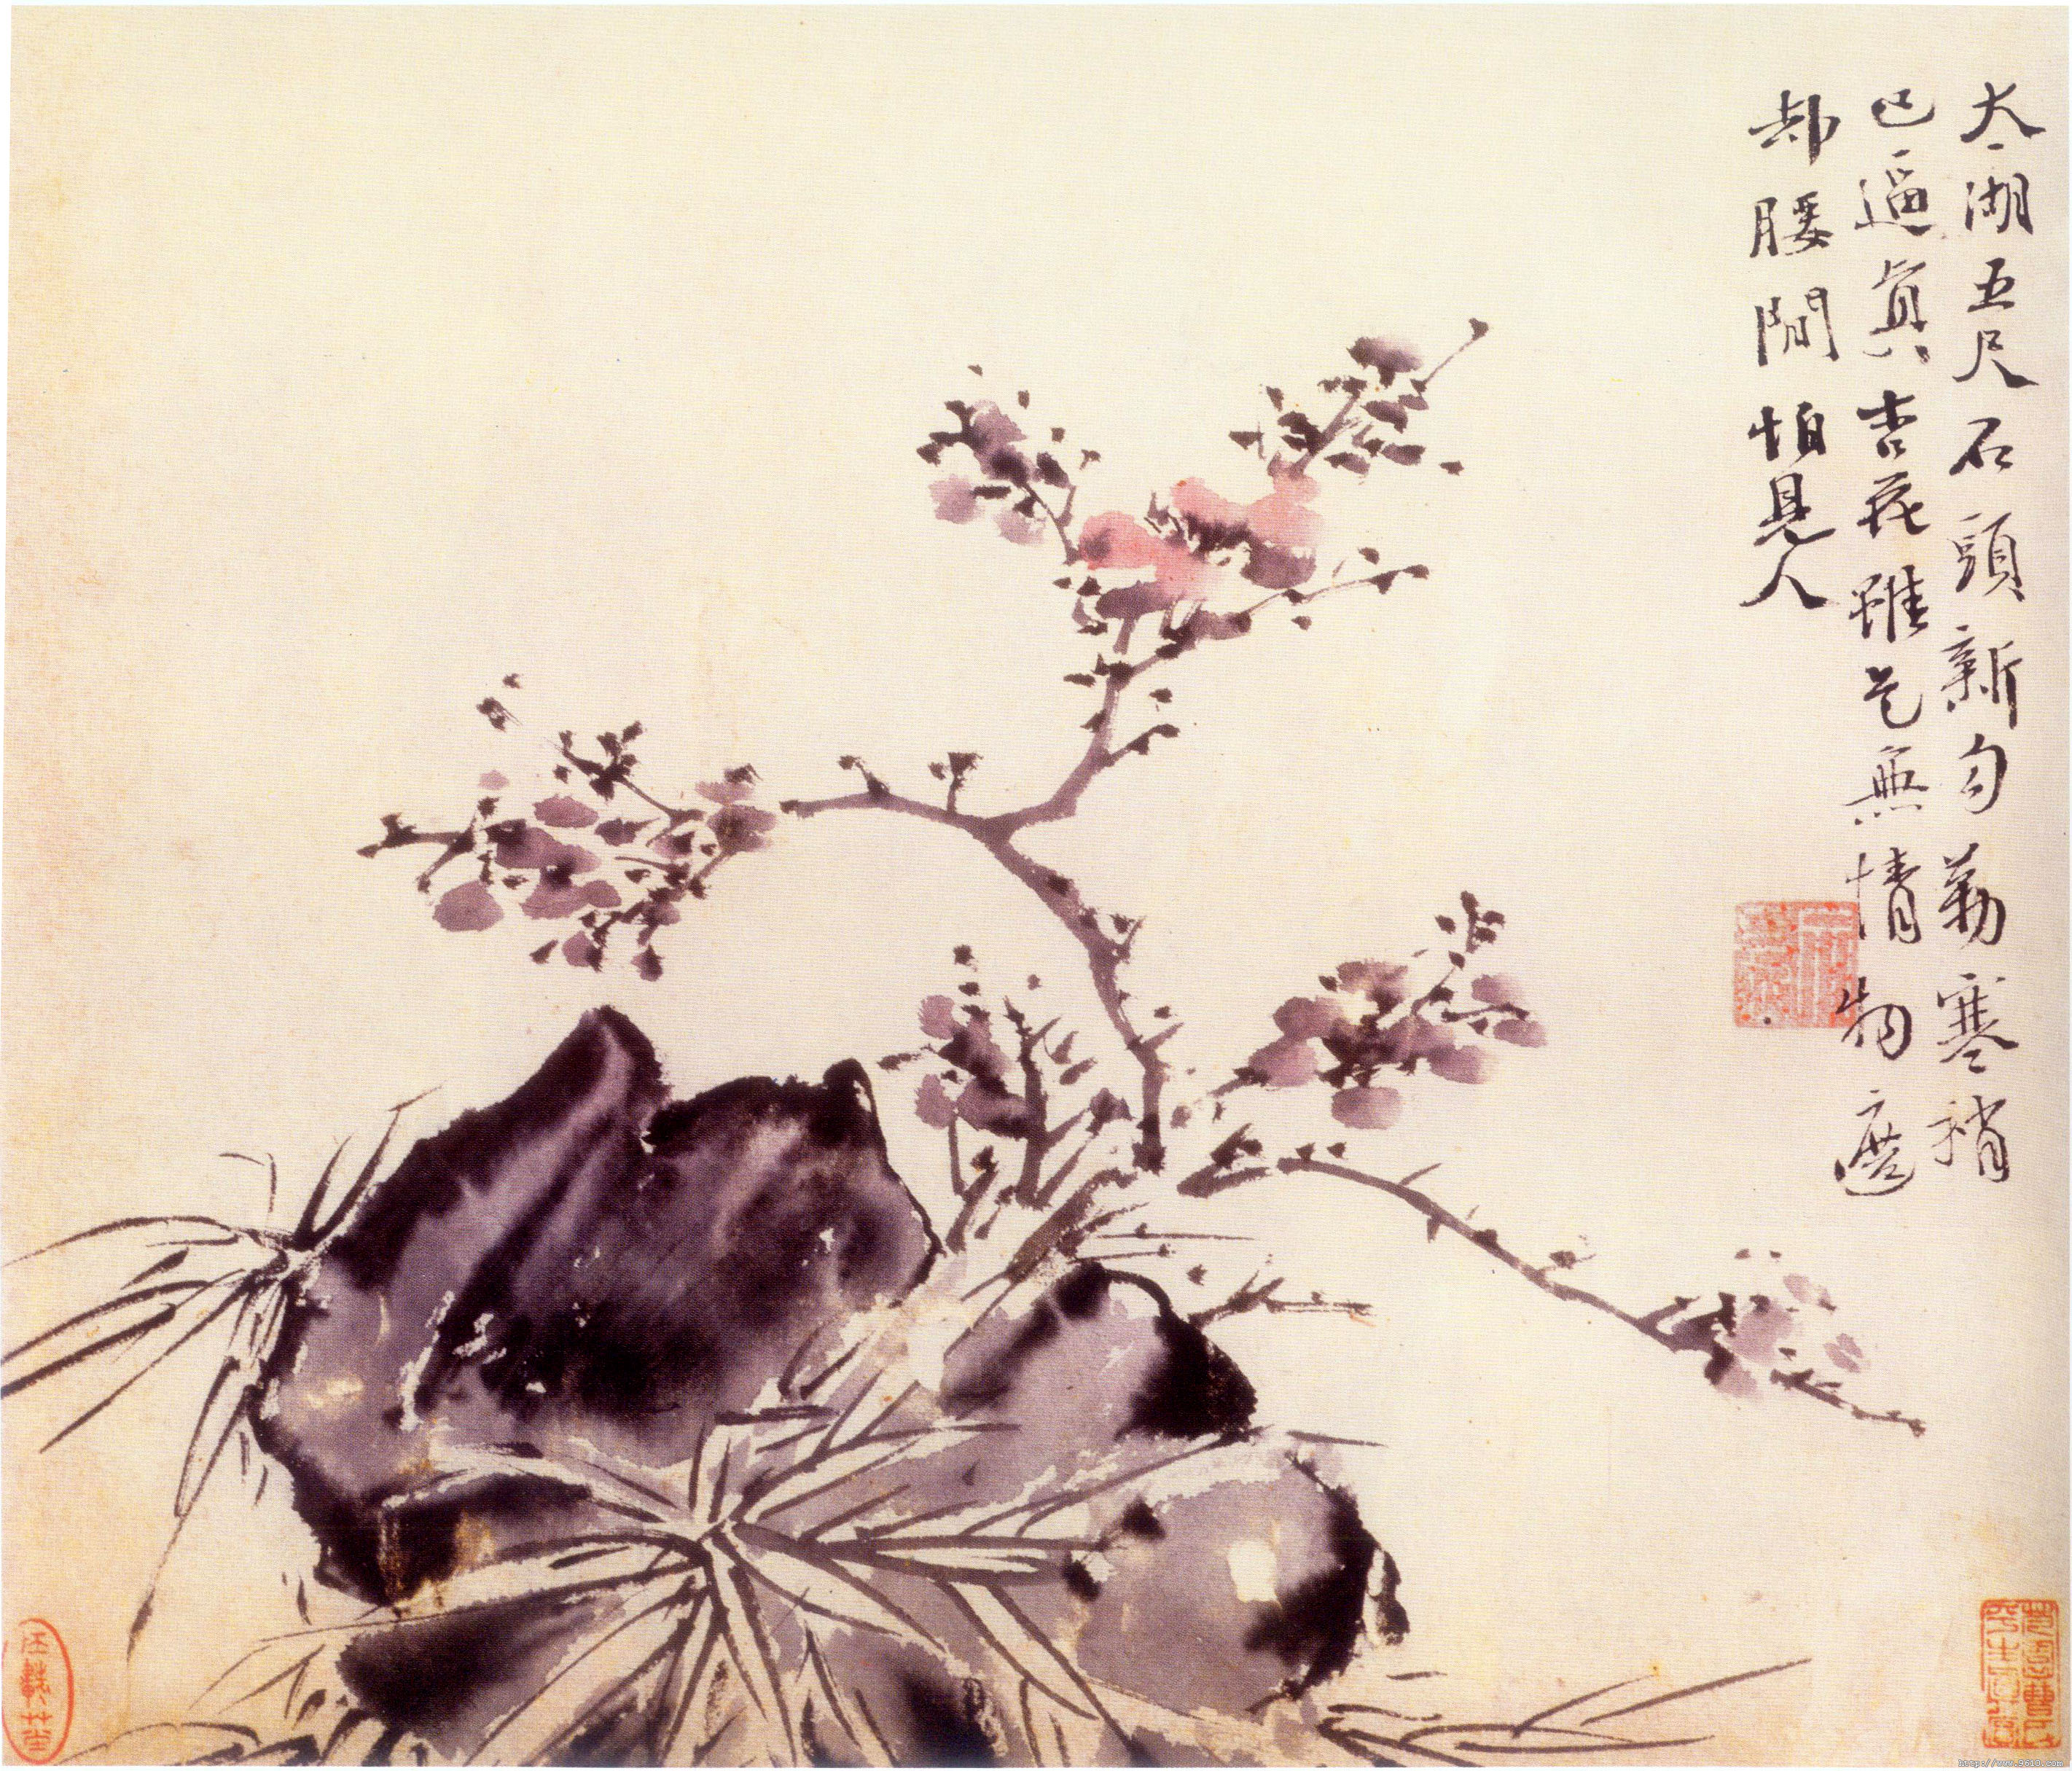 太湖五尺石頭新勾勒寒稍
已逼眞杏花雖是無情物遮
却腰間怕見人
http://www.9610.com